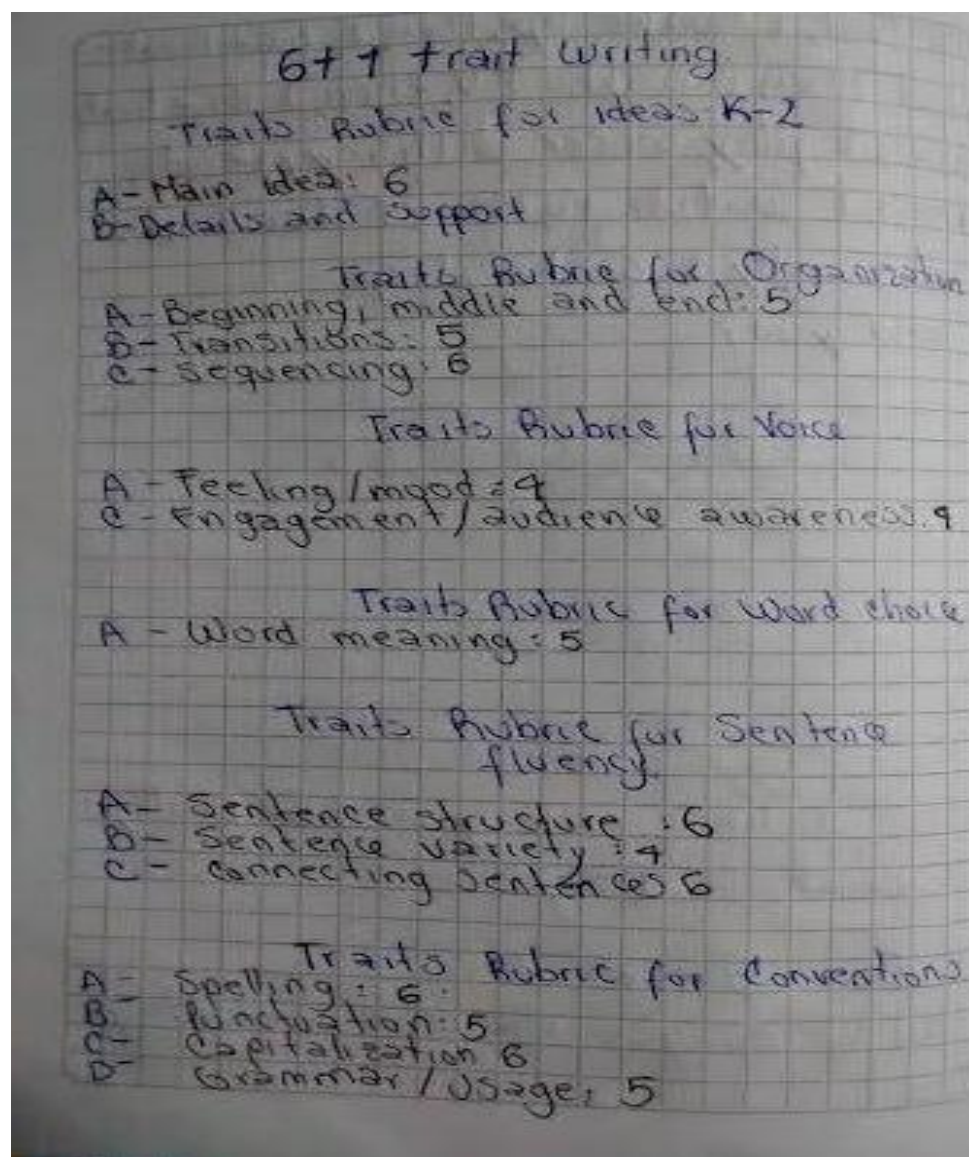 6+1 trait writing
Traits Rubric for ideas K-2
A- Main idea: 6
B- Details and Support
Traits Rubric for Organization
A- Beginning, middle and end: 5
B- Transitions: 5
C- Sequencing: 6
Traits Rubric for Voice
A - Feeling/mood: 4
C - Engagement/audience awareness: 4
Traits Rubric for Word choice
A - Word meaning: 5
Traits Rubric for Sentence
fluency.
A- Sentence structure: 6
B- Sentence variety: 4
C- Connecting Sentences 6
Traits Rubric for Conventions
A- Spelling: 6
B- Punctuation: 5
C- Capitalization 6
D- Grammar/Usage: 5